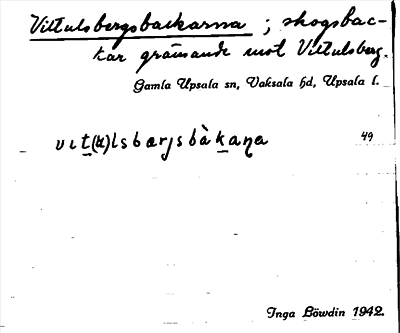 Vittulsbergsbackarna ; skogsbac-
kar gränsande mot Vittulsberg.
Gamla Upsala sn, Vaksala hd, Upsala l.
vıt(u)lsbærjsbàkaṇa 49
Inga Böwdin 1942.